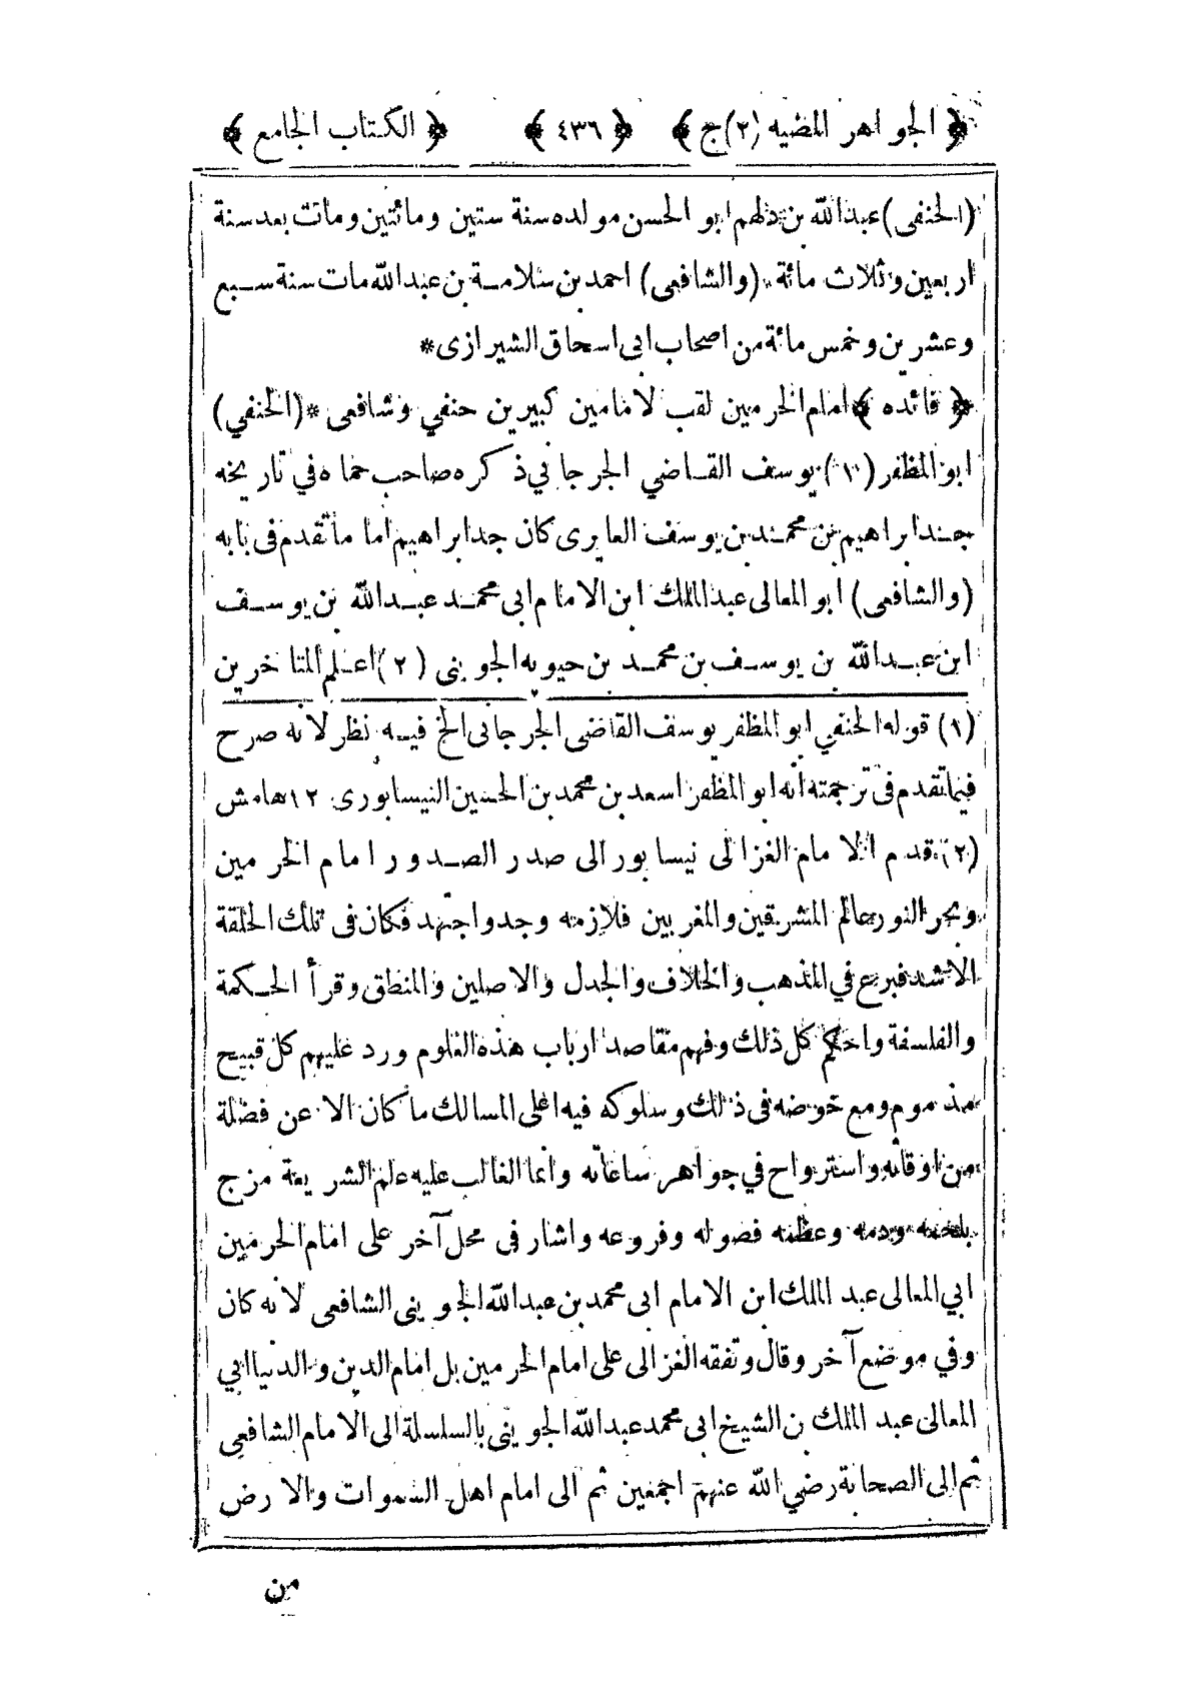 ﴿ الجواهر المضيه (٢) ج ﴾ ﴿ ٤٣٦ ﴾ ﴿ الكتاب الجامع ﴾
(الحنفى) عبدالله بن دلهم ابو الحسن مولده سنة ستين ومائتين ومات بعد سنة
اربعين وثلاث مائة * (والشافعى) احمد بن سلامة بن عبدالله مات سنة سبع
وعشرين وخمس مائة من اصحاب ابى اسحاق الشيرازى *
﴿ فائده ﴾ امام الحرمين لقب لامامين كبيرين حنفي وشافعى * (الحنفي)
ابو المظفر (١) يوسف القاضي الجرجاني ذكره صاحب حماه في تاريخه
جد ابراهيم بن محمد بن يوسف العايرى كان جد ابراهيم اما ما تقدم فى بابه
(والشافعى) ابو المعالى عبدالملك ابن الامام ابى محمد عبدالله بن يوسف
ابن عبدالله بن يوسف بن محمد بن حيويه الجوينى (٢) اعلم المتاخرين
(١) قوله الحنفي ابو المظفر يوسف القاضى الجرجانى الخ فيه نظر لانه صرح
فيما تقدم فى ترجمته انه ابو المظفر اسعد بن محمد بن الحسين النيسابورى ١٢ هامش
(٢) قدم الامام الغزالى نيسابور الى صدر الصدور امام الحرمين
وبحر النور عالم المشرقين والمغربين فلازمه وجد واجتهد فكان فى تلك الحلقة
الاشد فبرع في المذهب والخلاف والجدل والاصلين والمنطق وقرأ الحكمة
والفلسفة واحكم كل ذلك وفهم مقاصد ارباب هذه العلوم ورد عليهم كل قبيح
مذموم ومع خوضه فى ذلك وسلوكه فيه اعلى المسالك ما كان الا عن فضلة
من اوقاته واسترواح في جواهر ساعاته وانما الغالب عليه علم الشريعة مزج
بلحمه ودمه وعظمه فصوله وفروعه واشار فى محل آخر على امام الحرمين
ابي المعالى عبد الملك ابن الامام ابى محمد بن عبدالله الجوينى الشافعى لانه كان
وفي موضع آخر وقال وتفقه الغزالى على امام الحرمين بل امام الدين والدنيا ابي
المعالى عبد الملك بن الشيخ ابى محمد عبدالله الجوينى بالسلسلة الى الامام الشافعى
ثم الى الصحابة رضي الله عنهم اجمعين ثم الى امام اهل السموات والارض
من